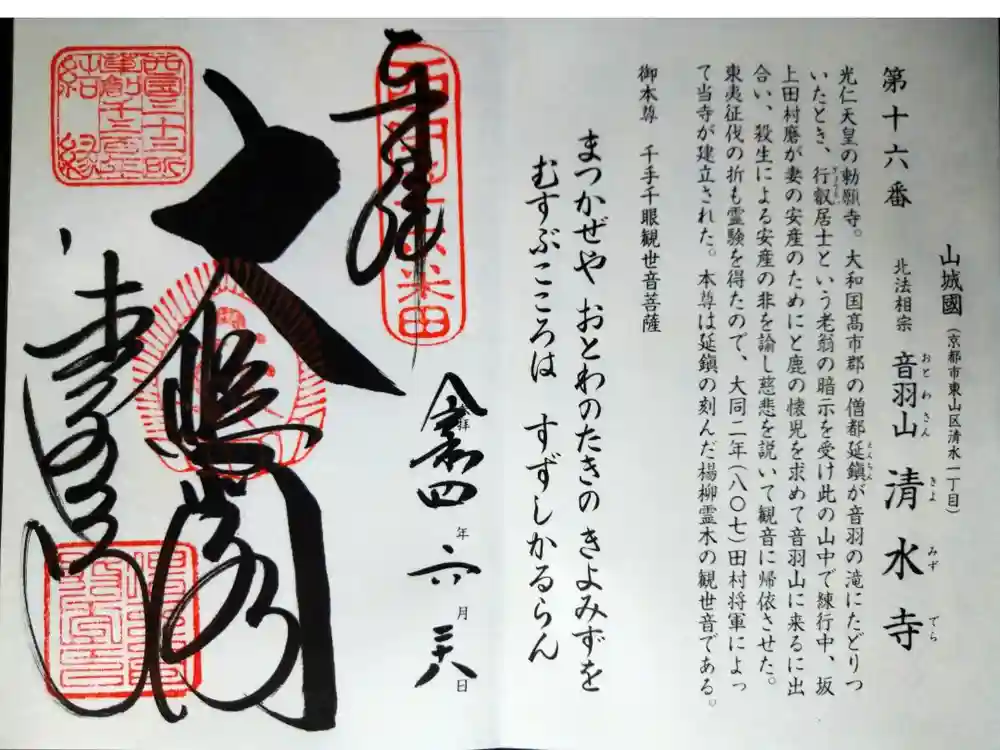 第十六番
山城國(京都市東山区清水一丁目)
北法相宗 音羽山 清水寺
おとわさん きよみずでら
光仁天皇の勅願寺。大和国高市郡の僧都延鎮が音羽の滝にたどりつ
いたとき、行叡居士という老翁の暗示を受け此の山中で練行中、坂
上田村麿が妻の安産のためにと鹿の懐児を求めて音羽山に来るに出
合い、殺生による安産の非を諭し慈悲を説いて観音に帰依させた。
東夷征伐の折も霊験を得たので、大同二年(八〇七)田村将軍によっ
て当寺が建立された。本尊は延鎮の刻んだ楊柳霊木の観世音である。
御本尊 千手千眼観世音菩薩
まつかぜや おとわのたきの きよみずを
むすぶこころは すずしかるらん
奉拝
令和四年六月二六日
大悲閣
清水寺
西国三十三所
草創千三百年
結縁